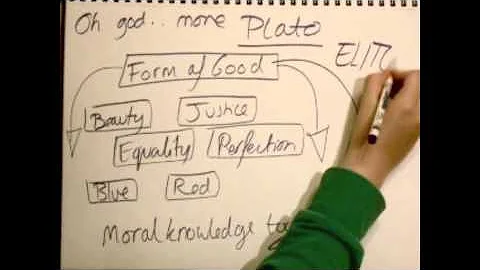 Oh god.. more Plato
ELITI
Form of Good
Beauty Justice
Equality Perfection
Blue Red
Moral knowledge